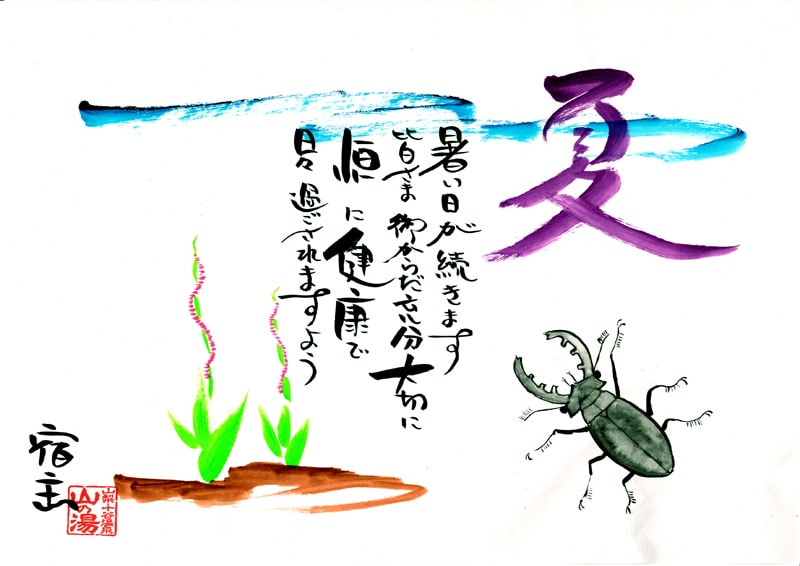 夏
暑い日が続きます
皆さま 御からだ充分大切に
恒に健康で
日々過ごされますよう
宿主
山の湯